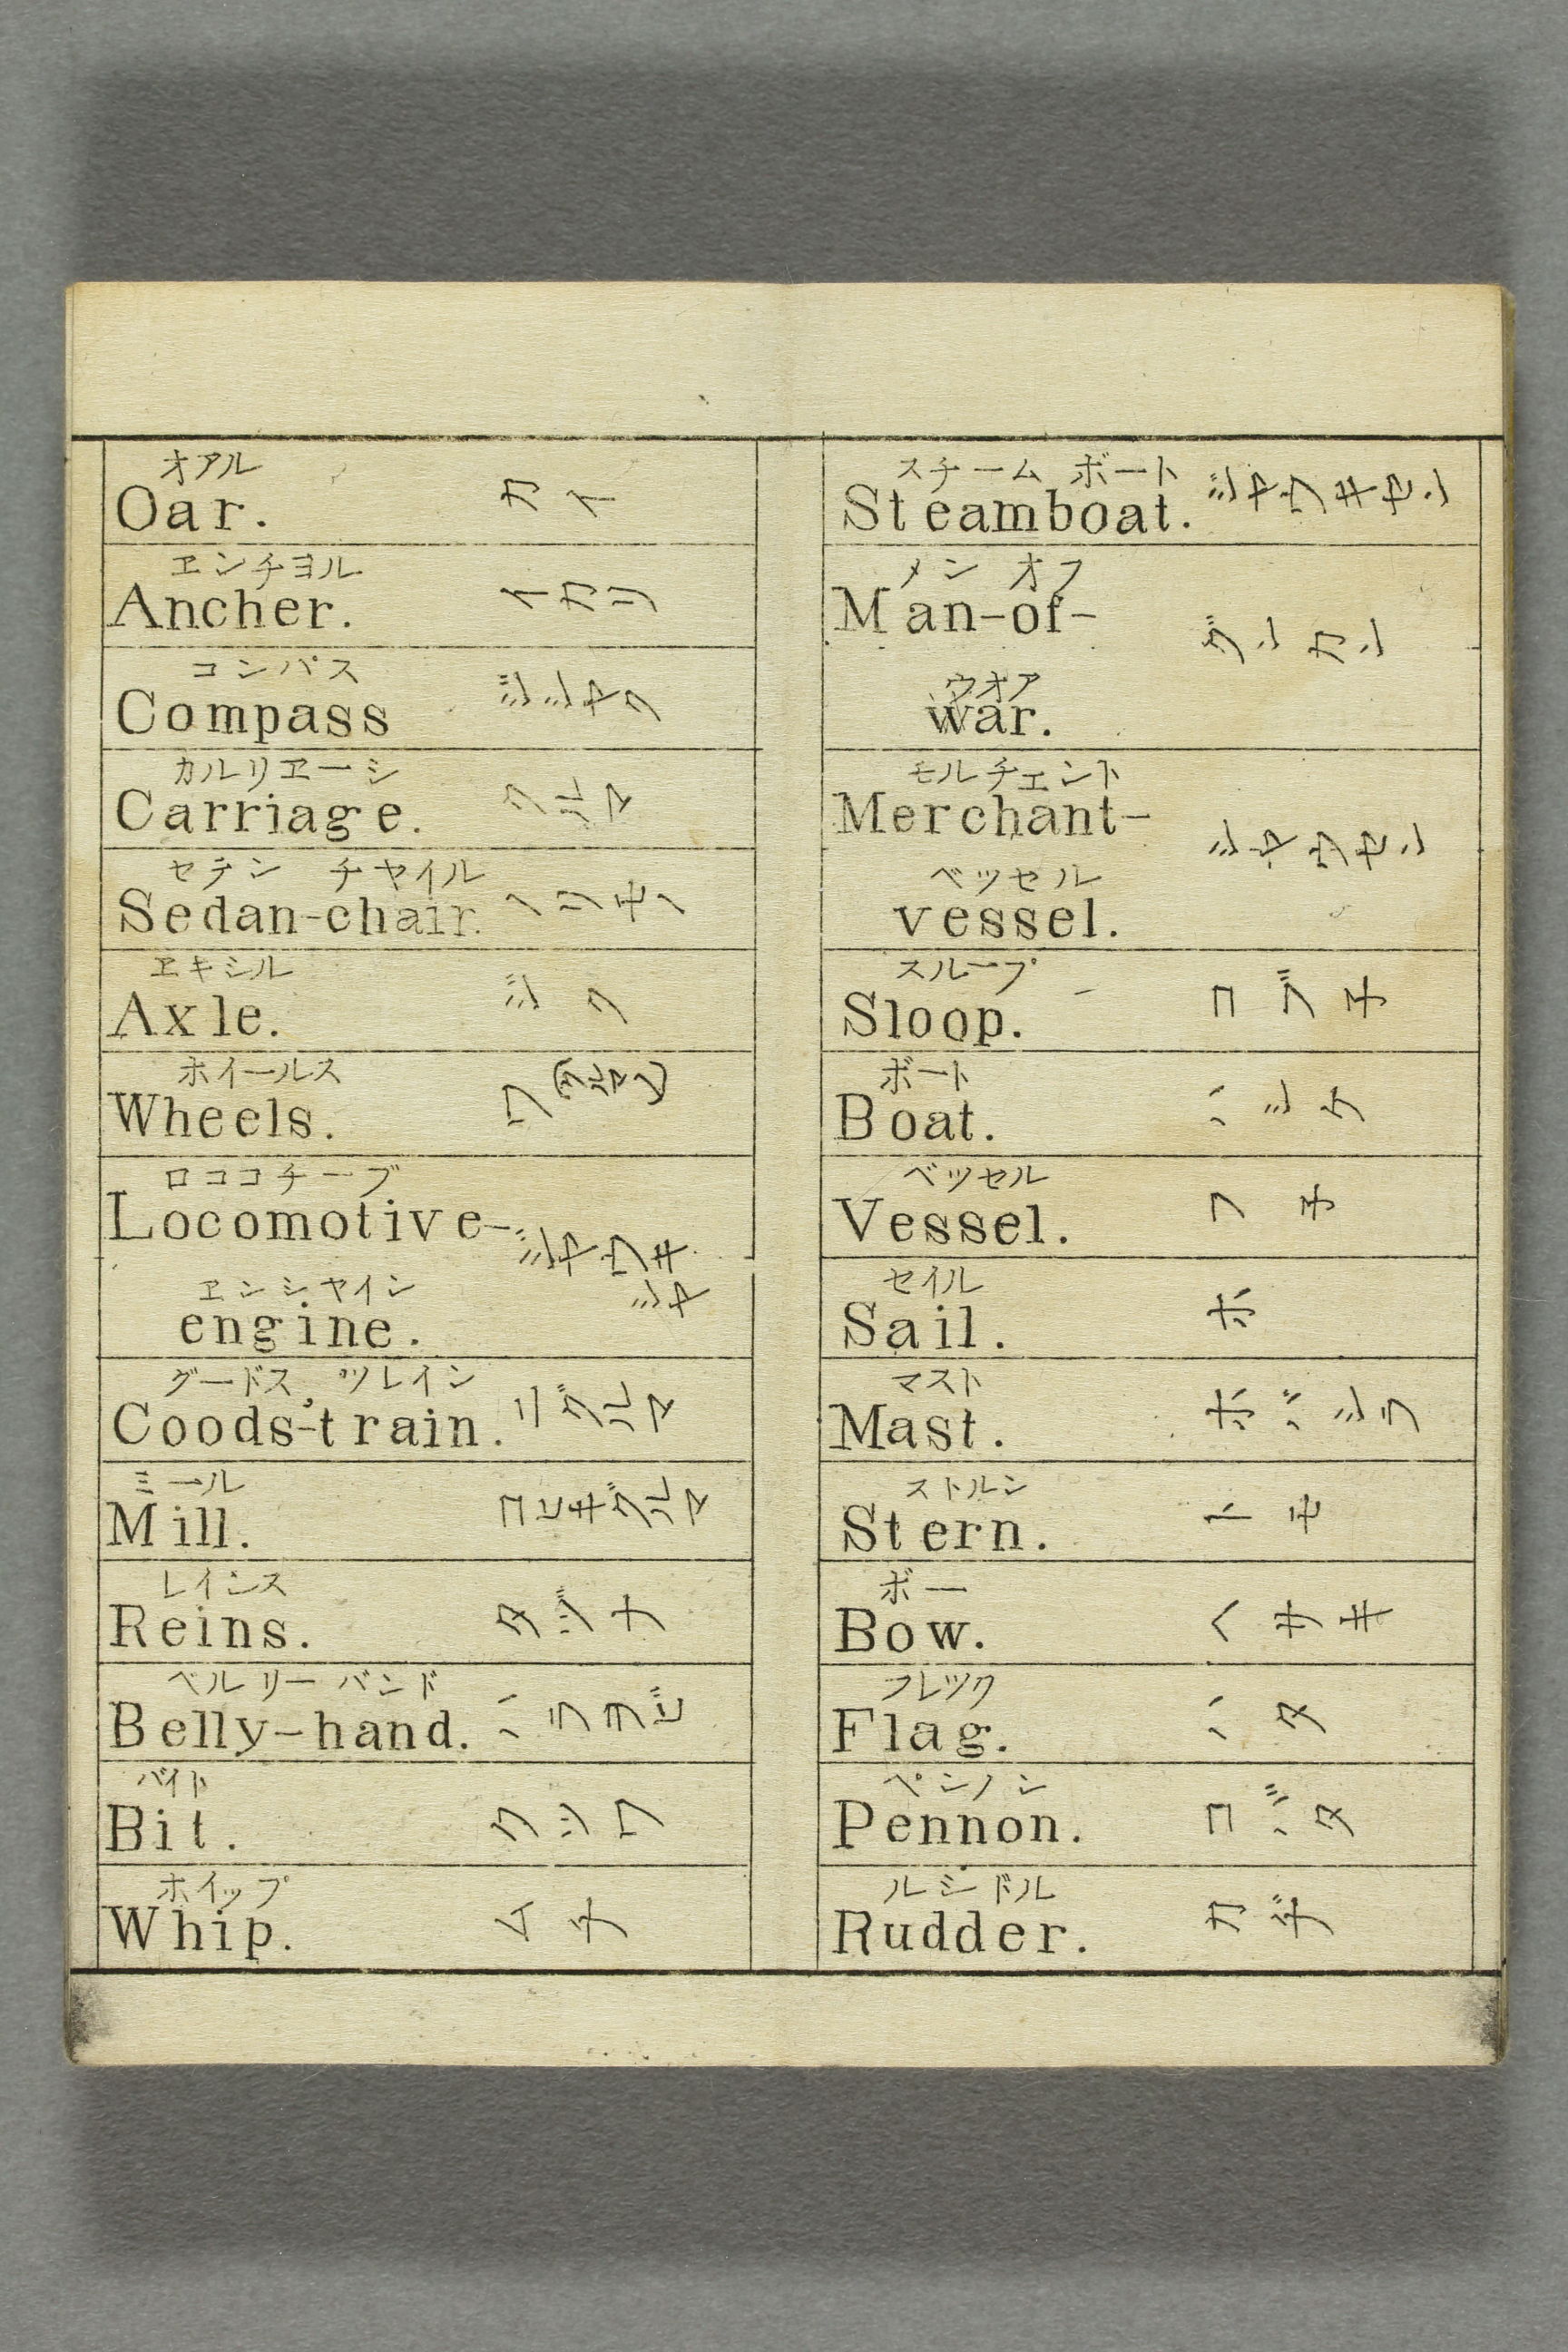 オアル
Oar. カイ
ヱンチヨル
Ancher. イカリ
コンパス
Compass ジシヤク
カルリヱーシ
Carriage. クルマ
セデン チヤイル
Sedan-chair. ノリモノ
ヱキシル
Axle. ジク
ホイールス
Wheels. ワ(クルマノ)
ロココチーブ
Locomotive- ジヤウキ
ヱンシヤイン シヤ
engine.
グードス, ツレイン
Coods-train. ニグルマ
ミール
Mill. コヒキグルマ
レインス
Reins. タヅナ
ベルリーバンド
Belly-hand. ハラヲビ
バイト
Bit. クツワ
ホイップ
Whip. ムチ
スチーム ボート
Steamboat. ジヤウキセン
メン オフ
Man-of- グンカン
ウオア
war.
モルチェント
Merchant- シヤウセン
ベッセル
vessel.
スループ
Sloop. コブ子
ボート
Boat. ハシケ
ベッセル
Vessel. フ子
セイル
Sail. ホ
マスト
Mast. ホバシラ
ストルン
Stern. トモ
ボー
Bow. ヘサキ
フレツク
Flag. ハタ
ペンノン
Pennon. コバタ
ルシドル
Rudder. カヂ